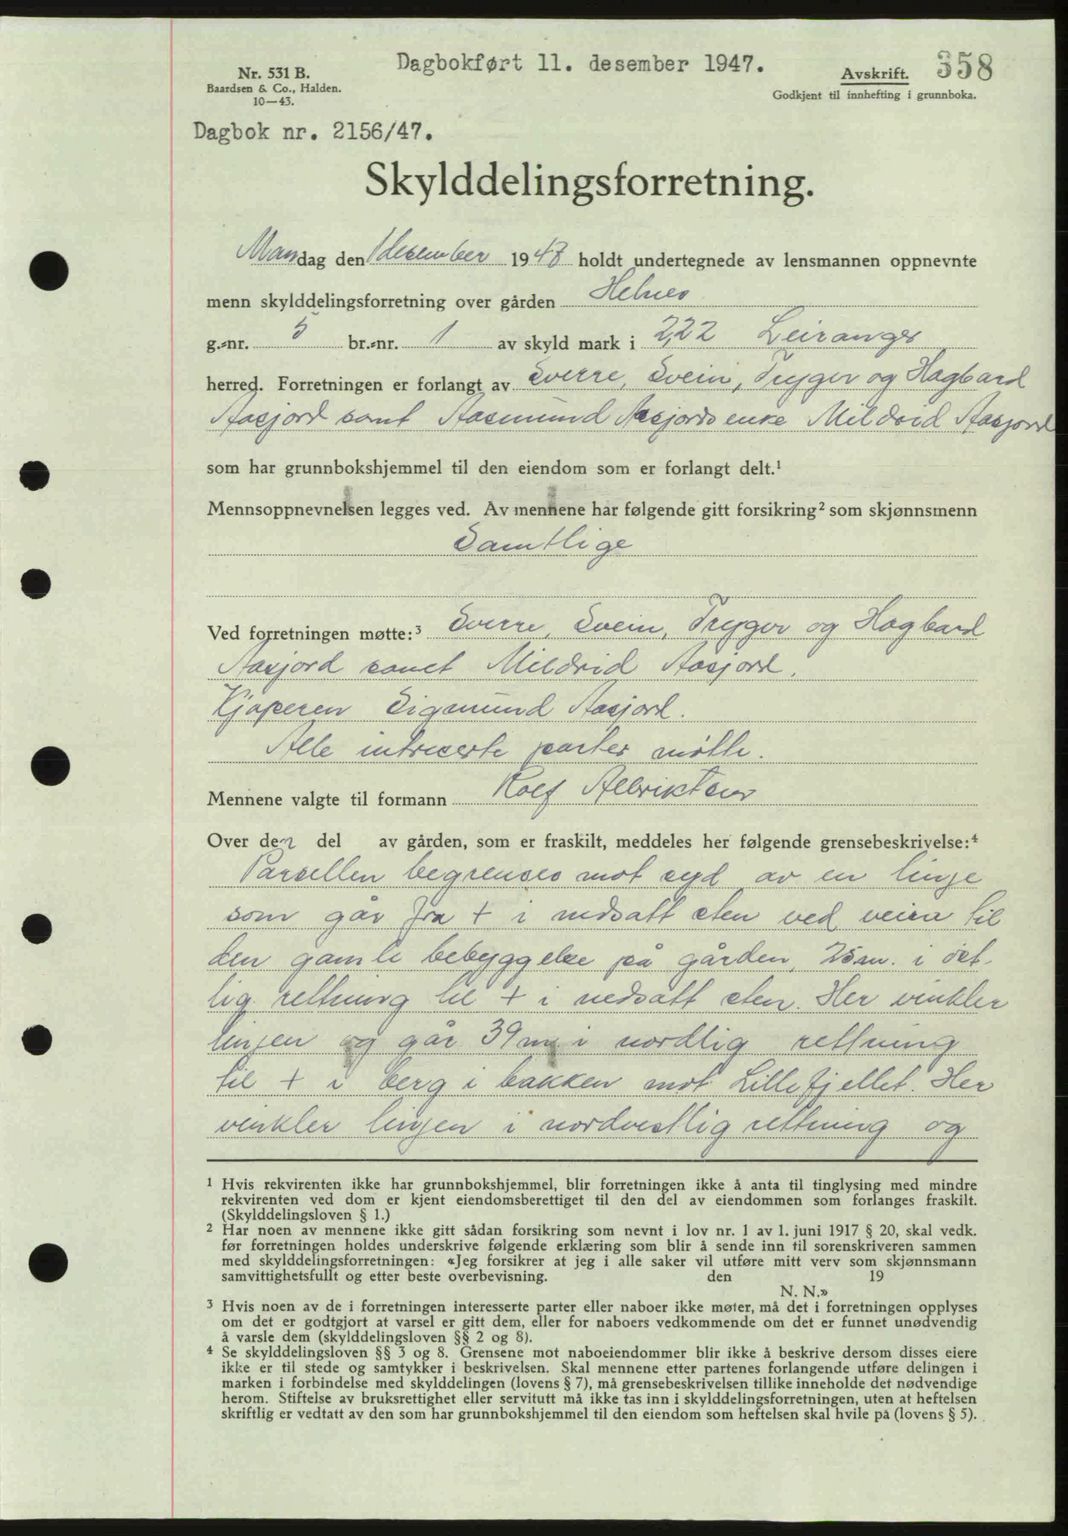 Dagbokført 11. desember 1947.
358
Nr. 531 B.
Baardsen & Co., Halden.
10—43.
Avskrift.
Godkjent til innhefting i grunnboka.
Dagbok nr. 2156/47.
Skylddelingsforretning.
Mandag den 1 desember 1947 holdt undertegnede av lensmannen oppnevnte
menn skylddelingsforretning over gården Helnes
g.-nr. 5 br.-nr. 1 av skyld mark i 2,22 Leiranger
herred. Forretningen er forlangt av Sverre, Svein, Trygve og Hagbard
Aasjord samt Aasmund Aasjords enke Mildrid Aasjord
som har grunnbokshjemmel til den eiendom som er forlangt delt.¹
Mennsoppnevnelsen legges ved. Av mennene har følgende gitt forsikring² som skjønnsmenn
Samtlige
Ved forretningen møtte:³ Sverre, Svein, Trygve og Hagbard
Aasjord samt Mildrid Aasjord.
Kjøperen Sigmund Aasjord.
Alle intreserte parter møtte.
Mennene valgte til formann Rolf Albriktsen
Over den del av gården, som er fraskilt, meddeles her følgende grensebeskrivelse:⁴
Parsellen begrenses mot syd av en linje
som går fra + i nedsatt sten ved veien til
den gamle bebyggelse på gården, 25 m. i øst-
lig rettning til + i nedsatt sten. Her vinkler
linjen og går 39 m i nordlig rettning
til + i berg i bakken mot Lillefjellet. Her
vinkler linjen i nordvestlig rettning og
¹ Hvis rekvirenten ikke har grunnbokshjemmel, blir forretningen ikke å anta til tinglysing med mindre
rekvirenten ved dom er kjent eiendomsberettiget til den del av eiendommen som forlanges fraskilt.
(Skylddelingsloven § 1.)
² Har noen av mennene ikke gitt sådan forsikring som nevnt i lov nr. 1 av 1. juni 1917 § 20, skal vedk.
før forretningen holdes underskrive følgende erklæring som blir å sende inn til sorenskriveren sammen
med skylddelingsforretningen: «Jeg forsikrer at jeg i alle saker vil utføre mitt verv som skjønnsmann
samvittighetsfullt og etter beste overbevisning. den 19
N. N.»
³ Hvis noen av de i forretningen interesserte parter eller naboer ikke møter, må det i forretningen opplyses
om det er godtgjort at varsel er gitt dem, eller for naboers vedkommende om det er funnet unødvendig
å varsle dem (skylddelingsloven §§ 2 og 8).
⁴ Se skylddelingsloven §§ 3 og 8. Grensene mot naboeiendommer blir ikke å beskrive dersom disses eiere
ikke er til stede og samtykker i beskrivelsen. Skal mennene etter partenes forlangende utføre delingen i
marken i forbindelse med skylddelingen (lovens § 7), må grensebeskrivelsen tillike inneholde det nødvendige
herom. Stiftelse av bruksrettighet eller servitutt må ikke tas inn i skylddelingsforretningen, uten at heftelsen
skriftlig er vedtatt av den som har grunnbokshjemmel til den eiendom som heftelsen skal hvile på (lovens § 5).